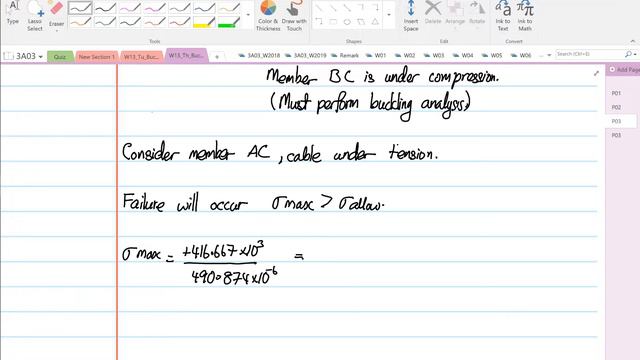 Type
Lasso Select
Panning Hand
Eraser
Color & Thickness
Draw with Touch
Shapes
Insert Space
Delete
Arrange
Rotate
Ink to Text
Ink to Math
3A03
Quiz
New Section 1
W13_Tu_Buc...
W13_Th_Buc...
3A03_W2018
3A03_W2019
Remark
W01
W02
W03
W04
W05
W06
Search
Add Page
P01
P02
P03
P03
Member BC is under compression.
(Must perform budding analysis)
Consider member AC, cable under tension.
Failure will occur σmax > σallow.
σmax = +416.667×10³ / 490.874×10⁻⁶ =